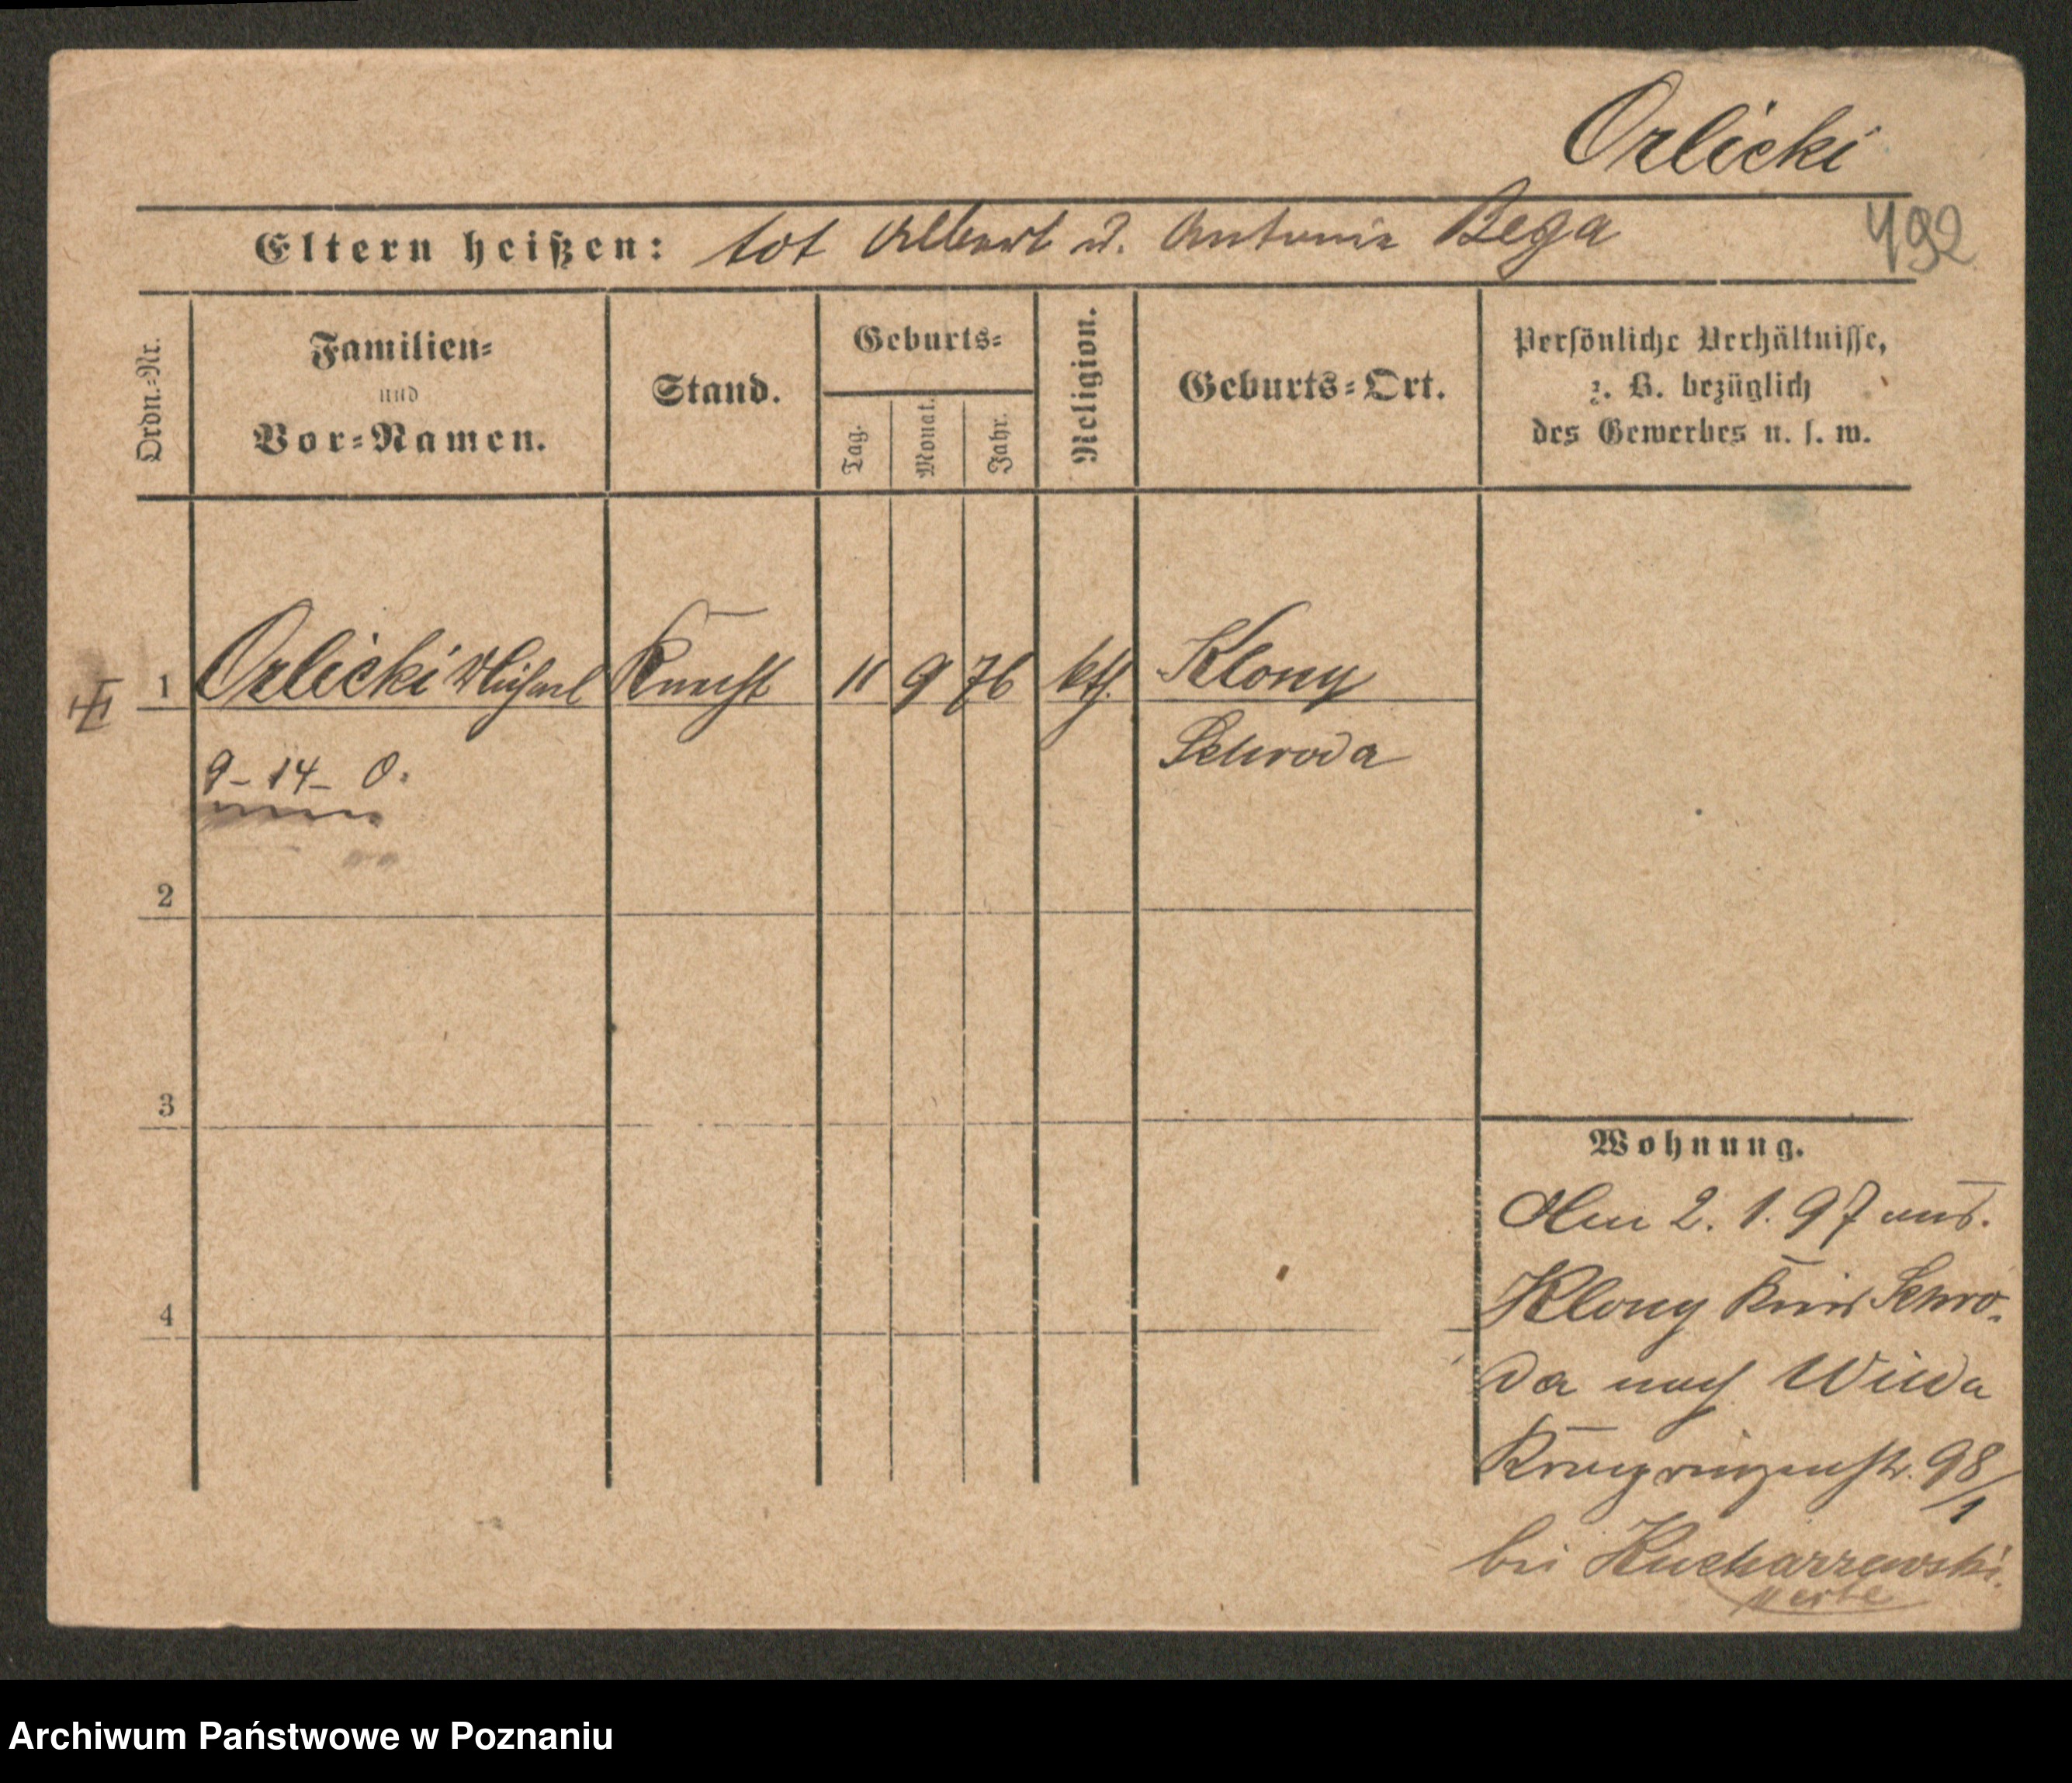 Orlicki
492
Eltern heißen: tot Albert u. Antonia Bega
Ordn.=Nr.
Familien=
und
Vor=Namen.
Stand.
Geburts=
Tag.
Monat.
Jahr.
Religion.
Geburts=Ort.
Persönliche Verhältnisse,
z. B. bezüglich
des Gewerbes u. s. w.
1 Orlicki Michael Knecht 11 9 76 kth. Klony
Schroda
9-14-0.
2
3
4
Wohnung.
Am 2. 1. 97 aus.
Klony Kreis Schro-
da nach Wilda
Kronprinzenstr. 98/1
bei Kucharzewski.
Archiwum Państwowe w Poznaniu